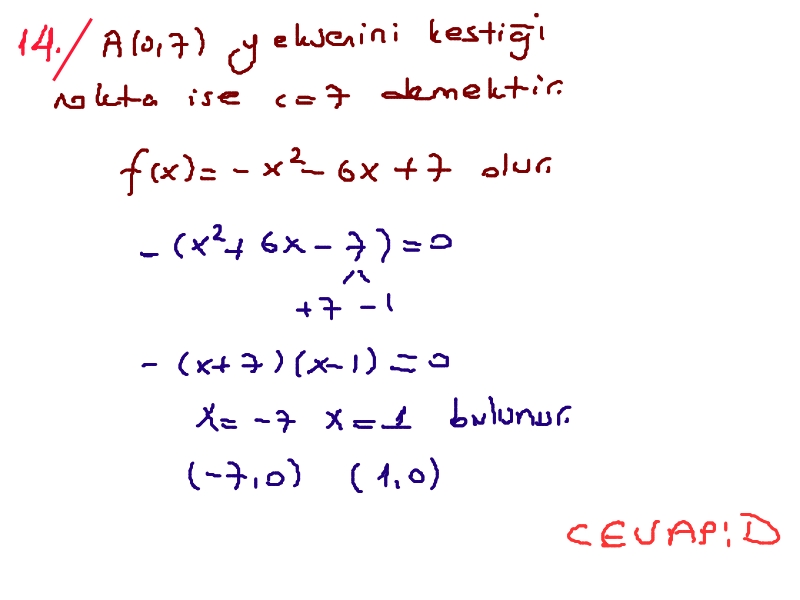 14./ A(0,7) y eksenini kestiği
nokta ise c=7 demektir.
f(x)= -x²- 6x +7 olur.
-(x²+ 6x - 7)=0
+7 -1
-(x+7)(x-1)=0
x= -7 x=1 bulunur.
(-7,0) (1,0)
CEVAP:D